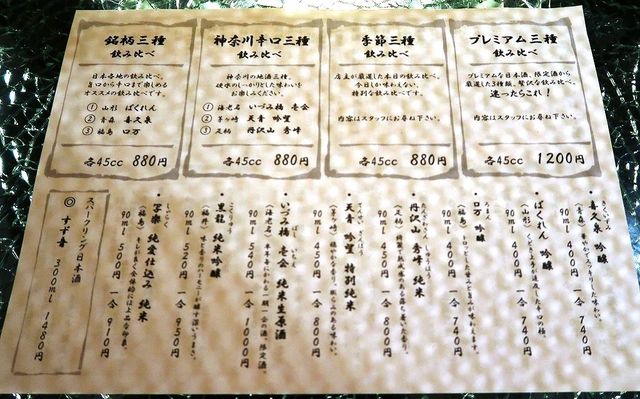 銘柄三種
飲み比べ
日本各地の飲み比べ。
旨口から辛口まで楽しめる
オススメの飲み比べです。
① 山形 ばくれん
② 青森 喜久泉
③ 福島 ロ万
各45cc 880円
神奈川辛口三種
飲み比べ
神奈川の地酒三種。
硬水のしっかりとした味わいを
お楽しみください。
① 海老名 いづみ橋 恵
② 茅ヶ崎 天青 吟望
③ 足柄 丹沢山 秀峰
各45cc 880円
季節三種
飲み比べ
店主が厳選した本日の飲み比べ。
今日しか味わえない、
特別な飲み比べです。
内容はスタッフにお尋ね下さい。
各45cc 880円
プレミアム三種
飲み比べ
プレミアムな日本酒、限定酒から
厳選した3種類。贅沢な飲み比べ。
迷ったらこれ！
内容はスタッフにお尋ね下さい。
各45cc 1200円
・喜久泉 吟醸
（青森）
90ml 400円 一合 740円
・ばくれん 吟醸
（山形）
90ml 400円 一合 740円
・ロ万 吟醸
（福島）
90ml 400円 一合 740円
・丹沢山 秀峰 純米
（足柄）
90ml 450円 一合 800円
・天青 吟望 特別純米
（茅ヶ崎）
90ml 450円 一合 800円
・いづみ橋 恵 純米生原酒
（海老名）
90ml 550円 一合 1000円
・黒龍 純米吟醸
（福井）
90ml 520円 一合 950円
・写楽 純愛仕込み 純米
（福島）
90ml 500円 一合 910円
スパークリング日本酒
◎ すず音
300ml 1480円